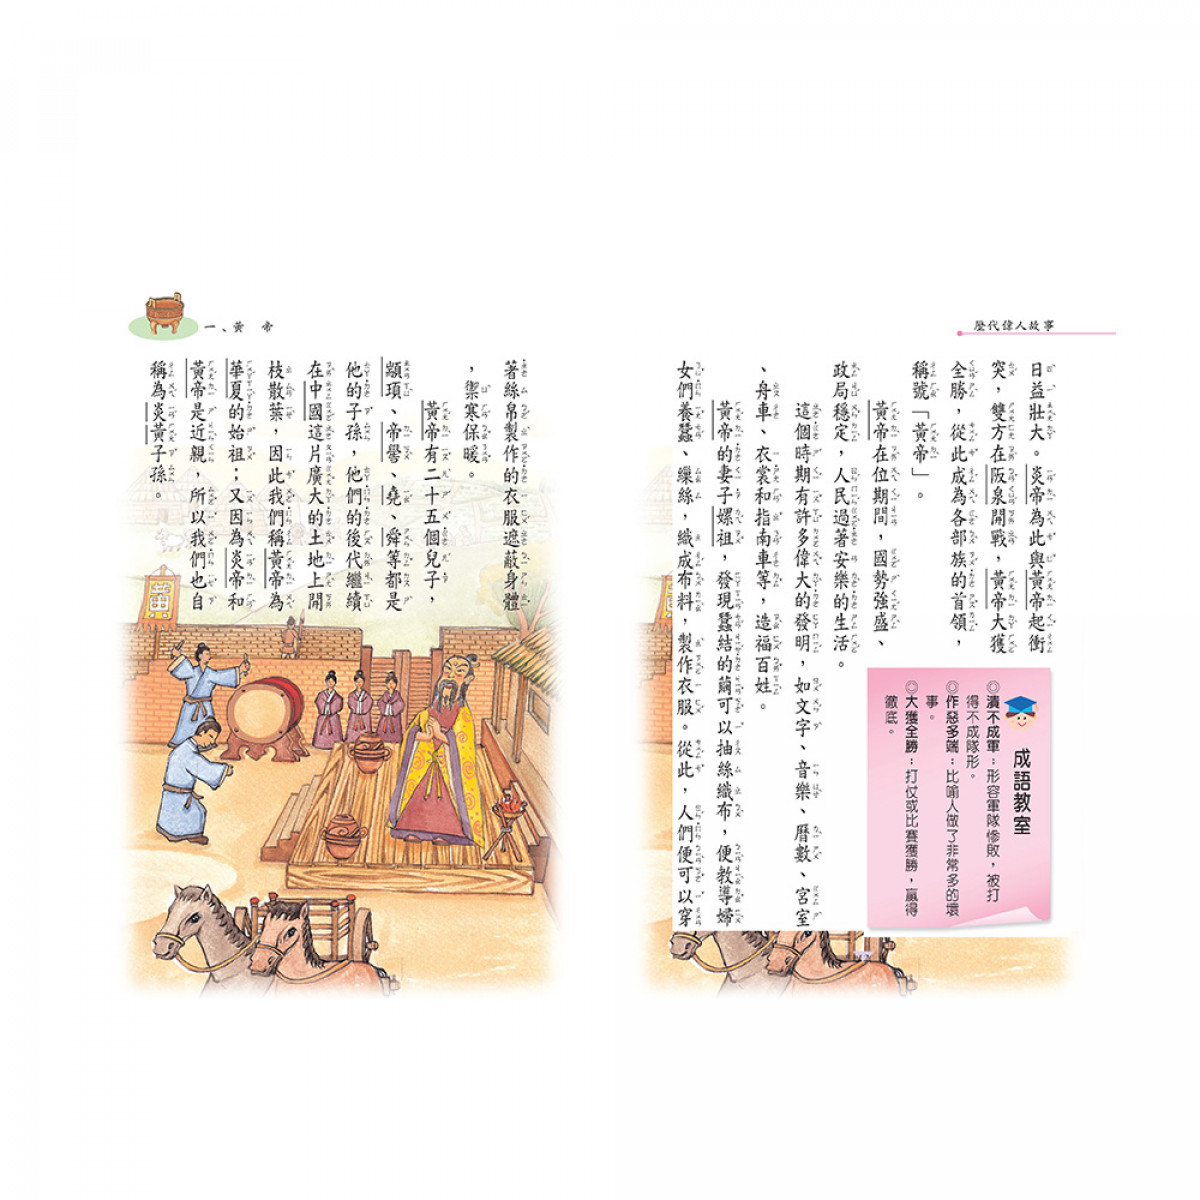 歷代偉人故事
日益壯大。炎帝為此與黃帝起衝
突，雙方在阪泉開戰，黃帝大獲
全勝，從此成為各部族的首領，
稱號「黃帝」。
黃帝在位期間，國勢強盛、
政局穩定，人民過著安樂的生活。
這個時期有許多偉大的發明，如文字、音樂、曆數、宮室
、舟車、衣裳和指南車等，造福百姓。
黃帝的妻子嫘祖，發現蠶結的繭可以抽絲織布，便教導婦
女們養蠶、繅絲，織成布料，製作衣服。從此，人們便可以穿
成語教室
◎潰不成軍：形容軍隊慘敗，被打
得不成隊形。
◎作惡多端：比喻人做了非常多的壞
事。
◎大獲全勝：打仗或比賽獲勝，贏得
徹底。
一、黃 帝
著絲帛製作的衣服遮蔽身體
，禦寒保暖。
黃帝有二十五個兒子，
顓頊、帝嚳、堯、舜等都是
他的子孫，他們的後代繼續
在中國這片廣大的土地上開
枝散葉，因此我們稱黃帝為
華夏的始祖；又因為炎帝和
黃帝是近親，所以我們也自
稱為炎黃子孫。
黃